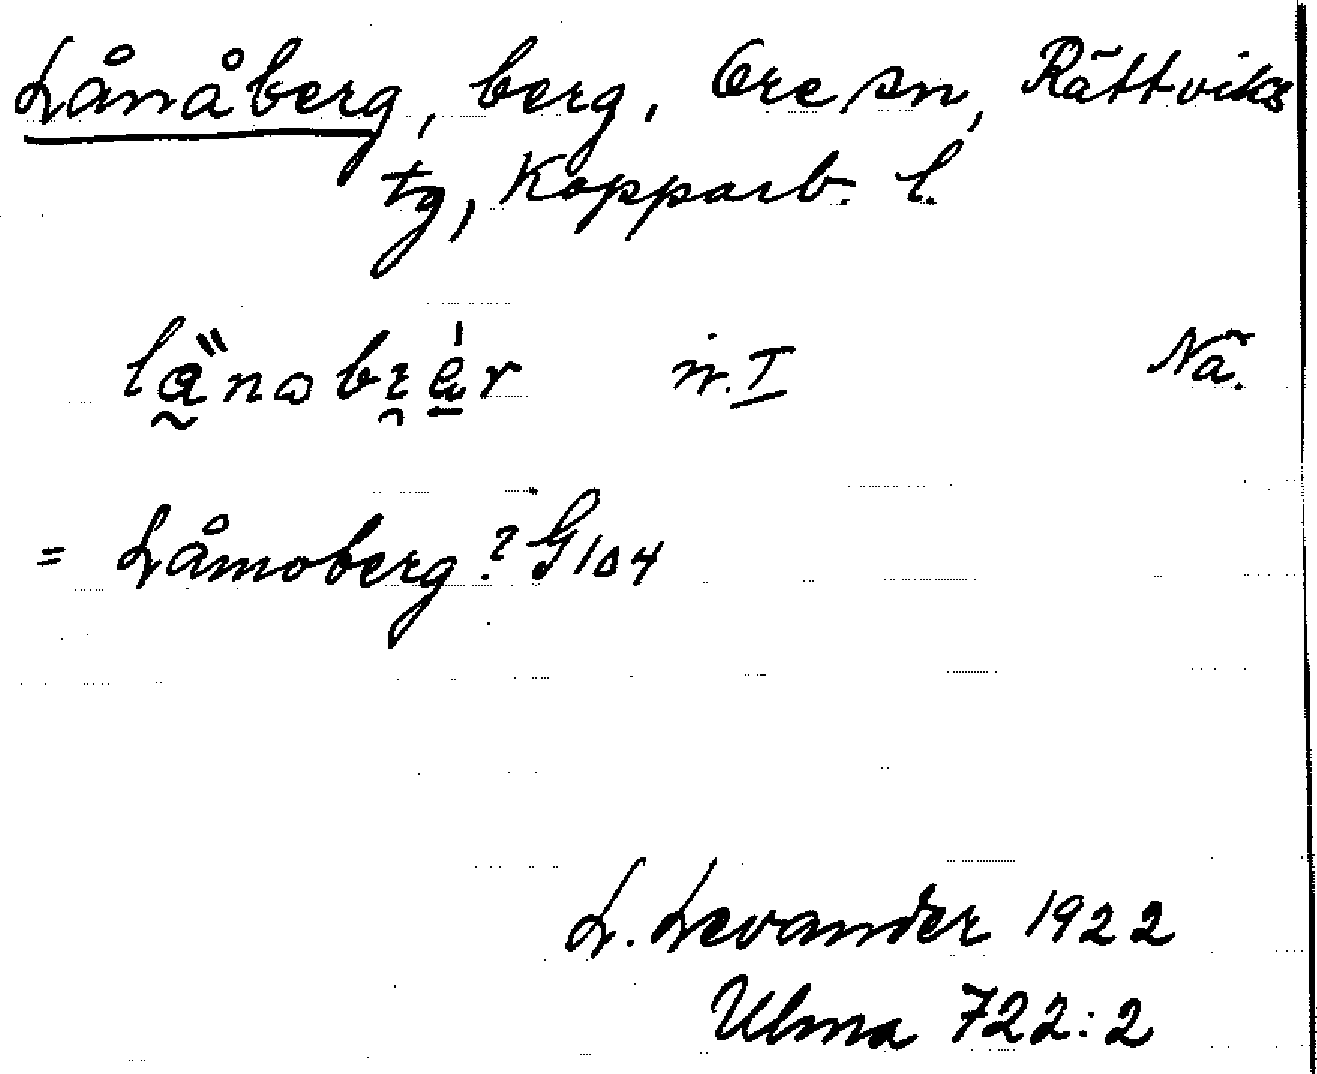 Lånåberg, berg, Ore sn, Rättviks
tg, Kopparb. l.
n. I Nä.
= Låmoberg? G104
L. Levander 1922
Ulma 722:2